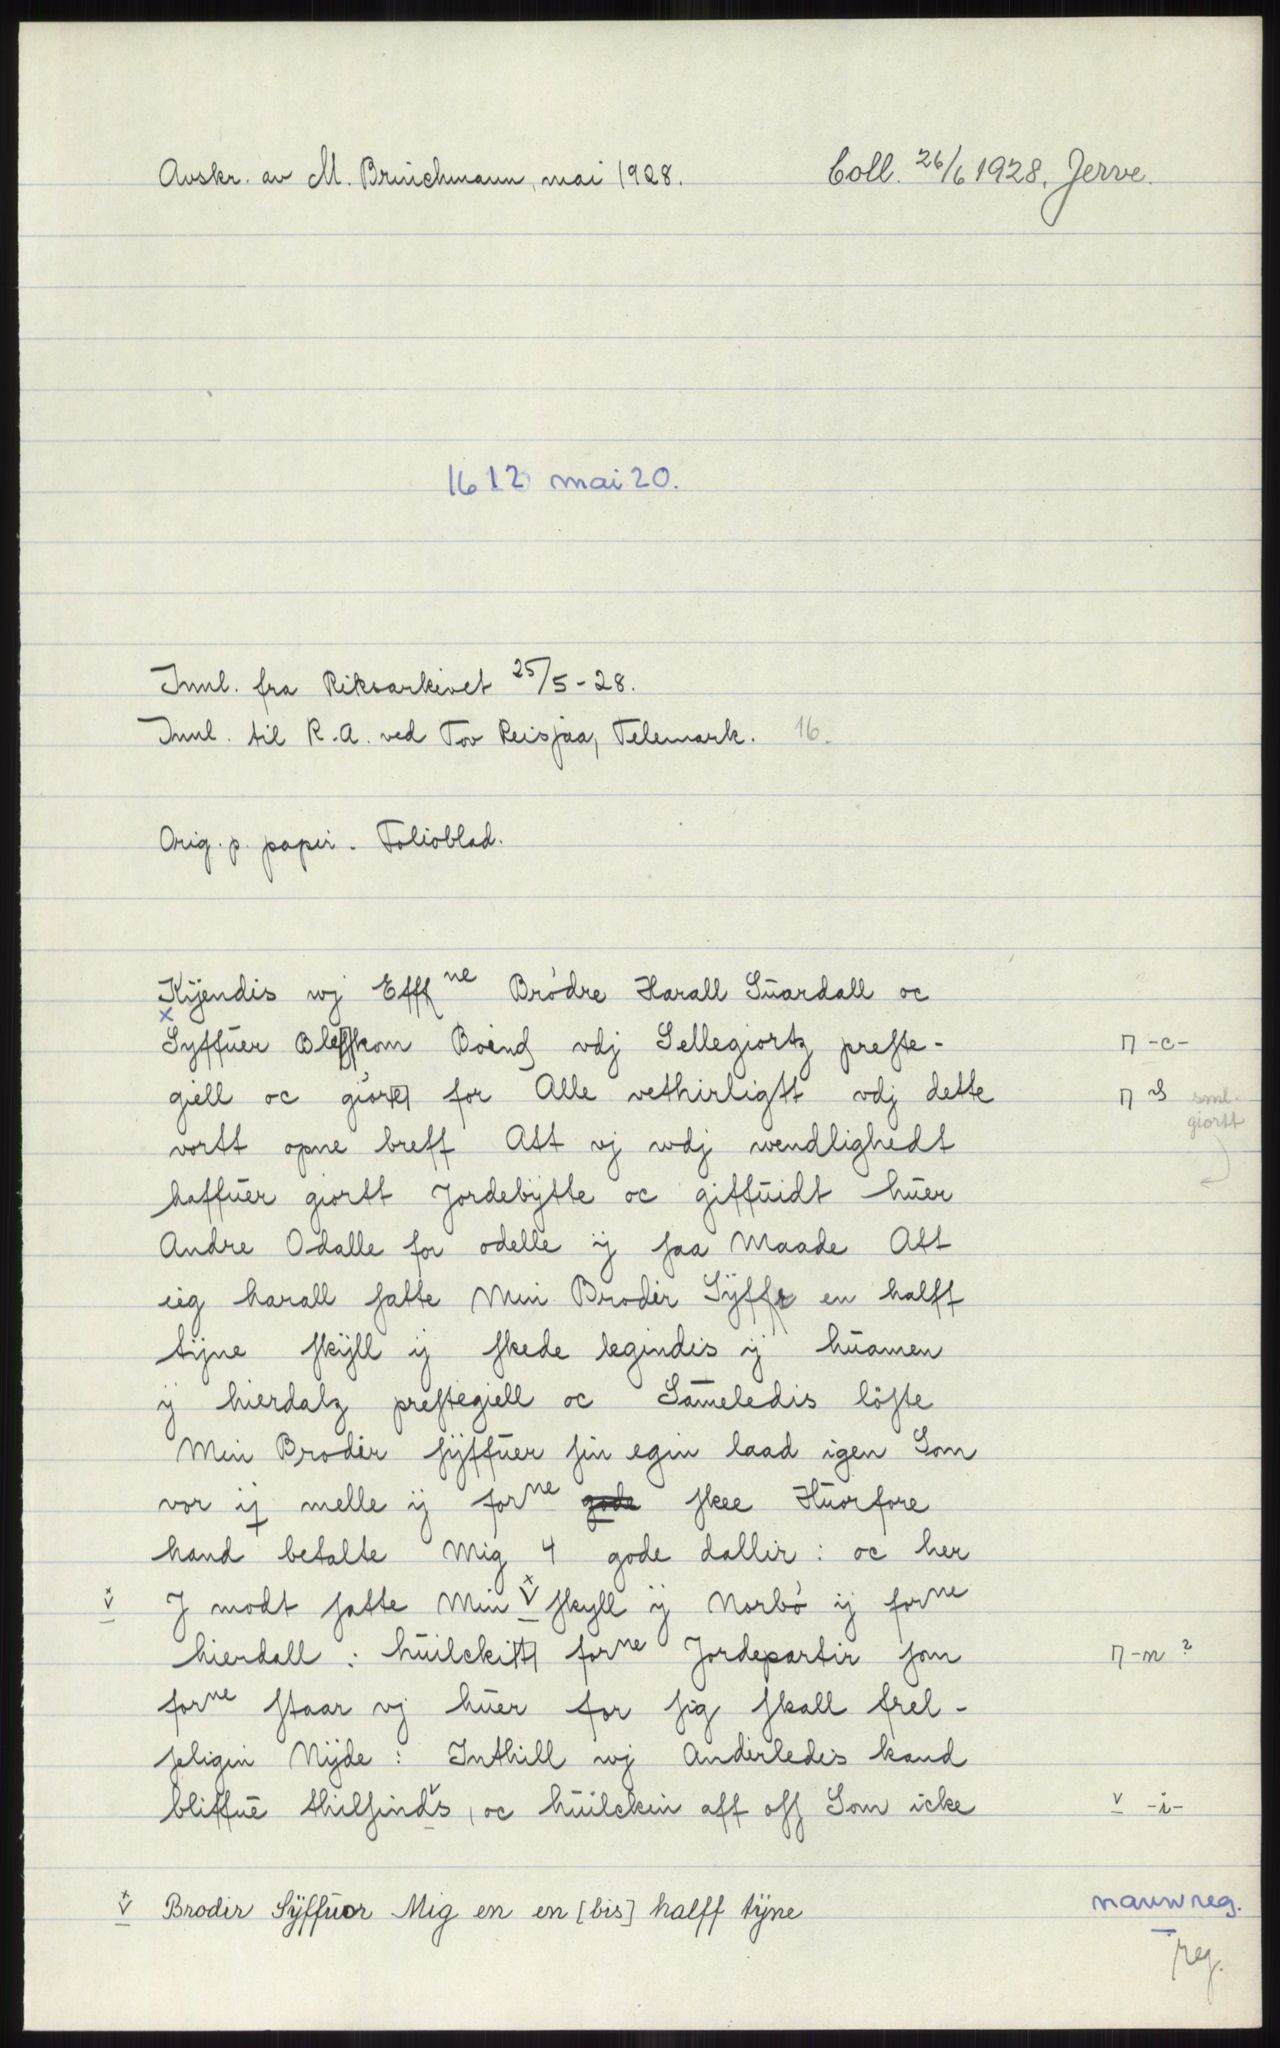 Avskr. av M. Brinchmann, mai 1928. Coll. 26/6 1928. Jerve.
1612 mai 20.
Innl. fra Riksarkivet 25/5-28.
Innl. til R.A. ved Tov Reisjaa, Telemark. 16.
Orig. p. papir. Folioblad.
Kyendis wj Efffne Brödre Harall Suardall oc
Syffuer Bleffkom Boend vdj Sellegiortz prefte- ⊓ -c-
giell oc for Alle vethirligtt vdj dette ⊓ sml. giortt
vortt opne breff Att vj wdj wendlighedt
haffuer giortt Jordebÿtte oc giffuidt huer
Andre Odalle for odelle ÿ faa Maade Att
ieg harall fatte Min Brodir Sÿffr en halff
tÿne fkÿll ÿ fkede legindis ÿ huamen
ÿ hierdalz preftegiell oc Sameledis löfte
Min Brodir fÿffuer fin egin laad igen Som
vor ij melle ÿ forne gode fkee Huorfore
hand betalte Mig 4 gode dallir: oc her
v J modt fatte Min v fkyll ÿ Norbö ÿ forne
hierdall: huilckitt forne Jordepartir fom ⊓ -n ?
forne ftaar vj huer for fig fkall frel-
feligin Nÿde: Inthill wj Anderledis kand
bliffue thilfinds, oc huilckin aff off Som icke v -i-
v Brodir Sÿffuor Mig en en [bis] halff tÿne
navnreg.
reg.